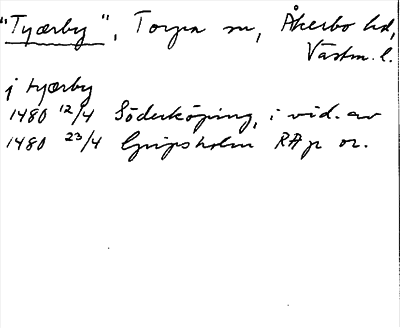 "Tyærby", Torpa sn, Åkerbo hd,
Västm. l.
j tyærby
1480 12/4 Söderköping, i vid. av
1480 23/4 Gripsholm RA p or.